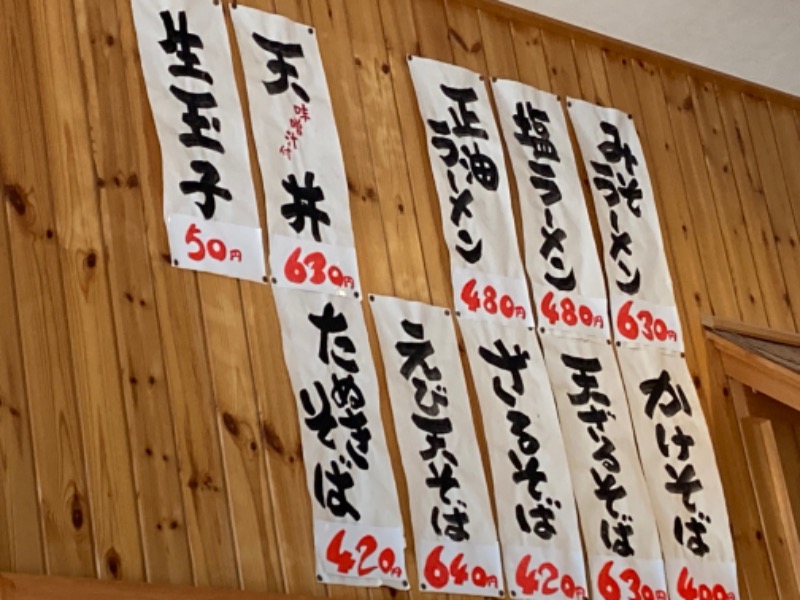 みそラーメン
630円
塩ラーメン
480円
正油ラーメン
480円
天丼
味噌汁付
630円
生玉子
50円
かけそば
400円
天ざるそば
630円
ざるそば
420円
えび天そば
640円
たぬきそば
420円